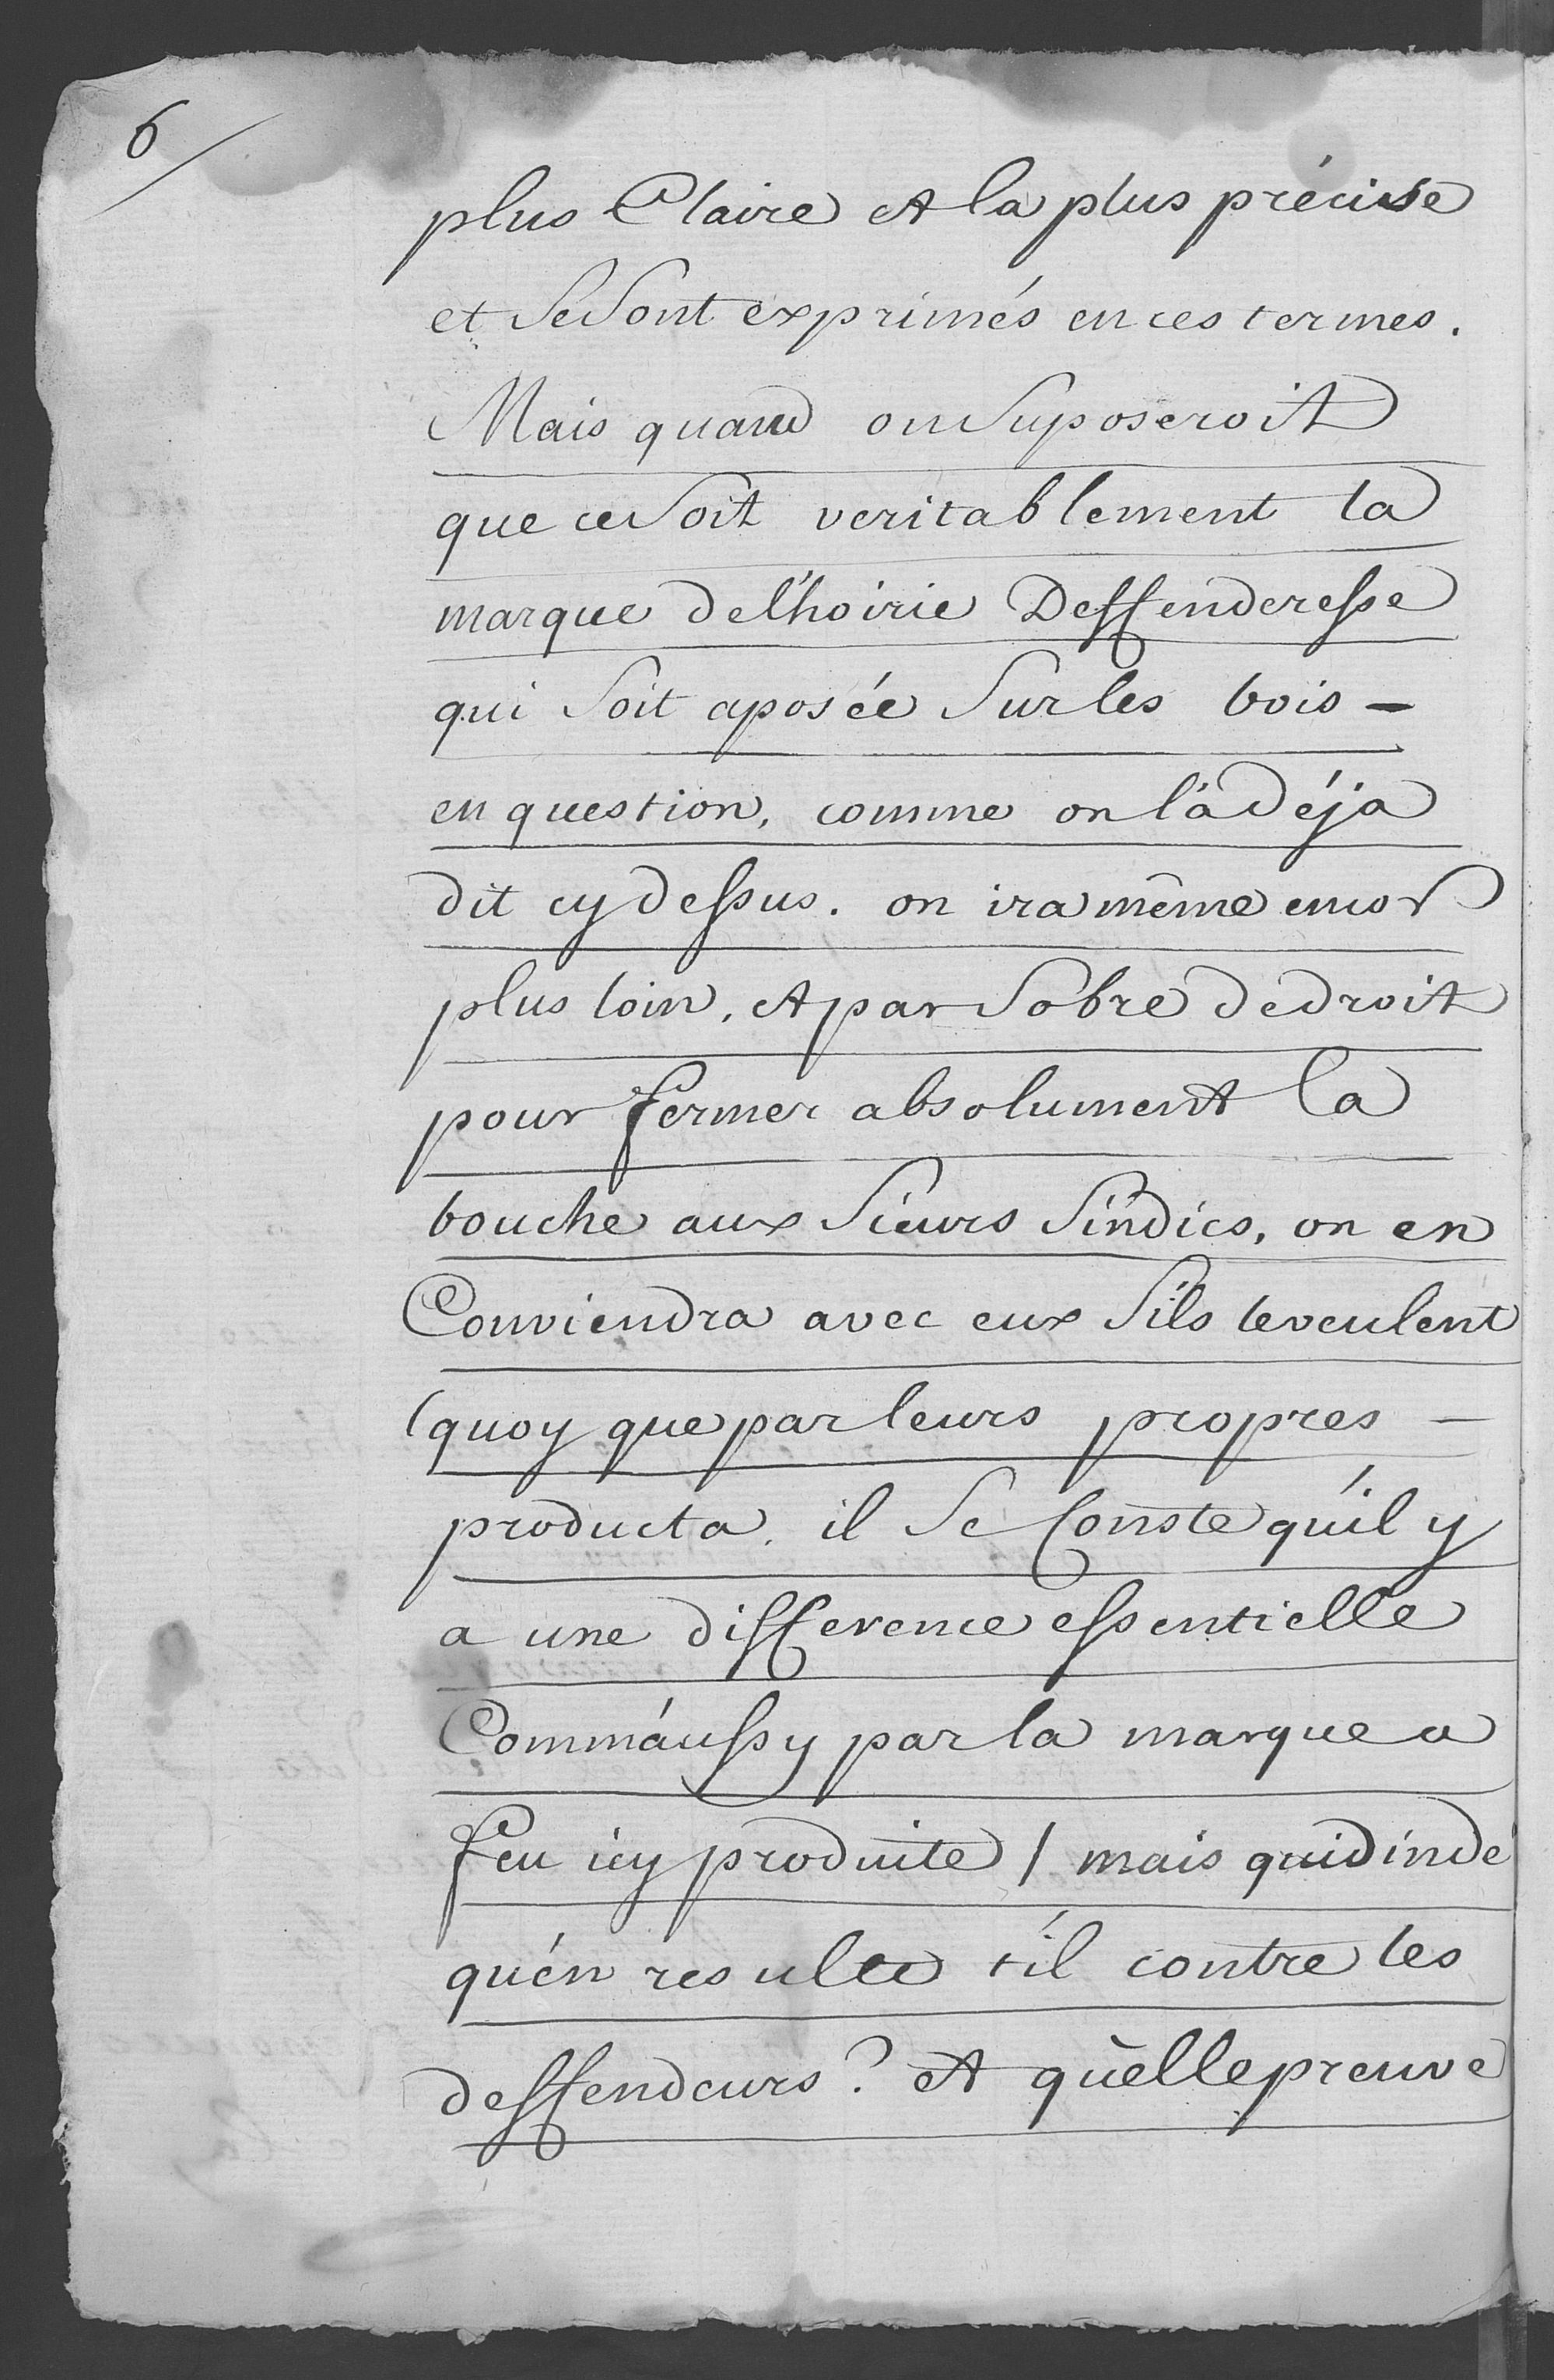 6
plus Claire et la plus précise
et se sont exprimés en ces termes.
Mais quand on suposeroit
que ce soit veritablement la
marque de l'hoirie Deffenderesse
qui soit aposée sur les bois -
en question, comme on l'a déja
dit cy dessus. on ira même encor
plus loin, et par sobre de droit
pour fermer absolument la
bouche aux sieurs sindics, on en
Conviendra avec eux s'ils le veulent
(quoy que par leurs propres -
producta, il se Conste qu'il y
a une difference essentielle
Comm'aussy par la marque a
feu icy produite / mais quid inde
qu'en resulte t'il contre les
deffendeurs? et quelle preuve